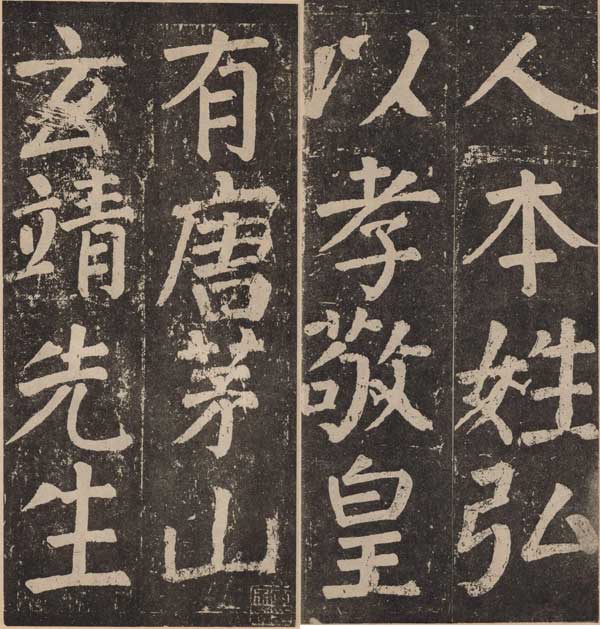 人本姓弘
以孝敬皇
有唐茅山
玄靖先生